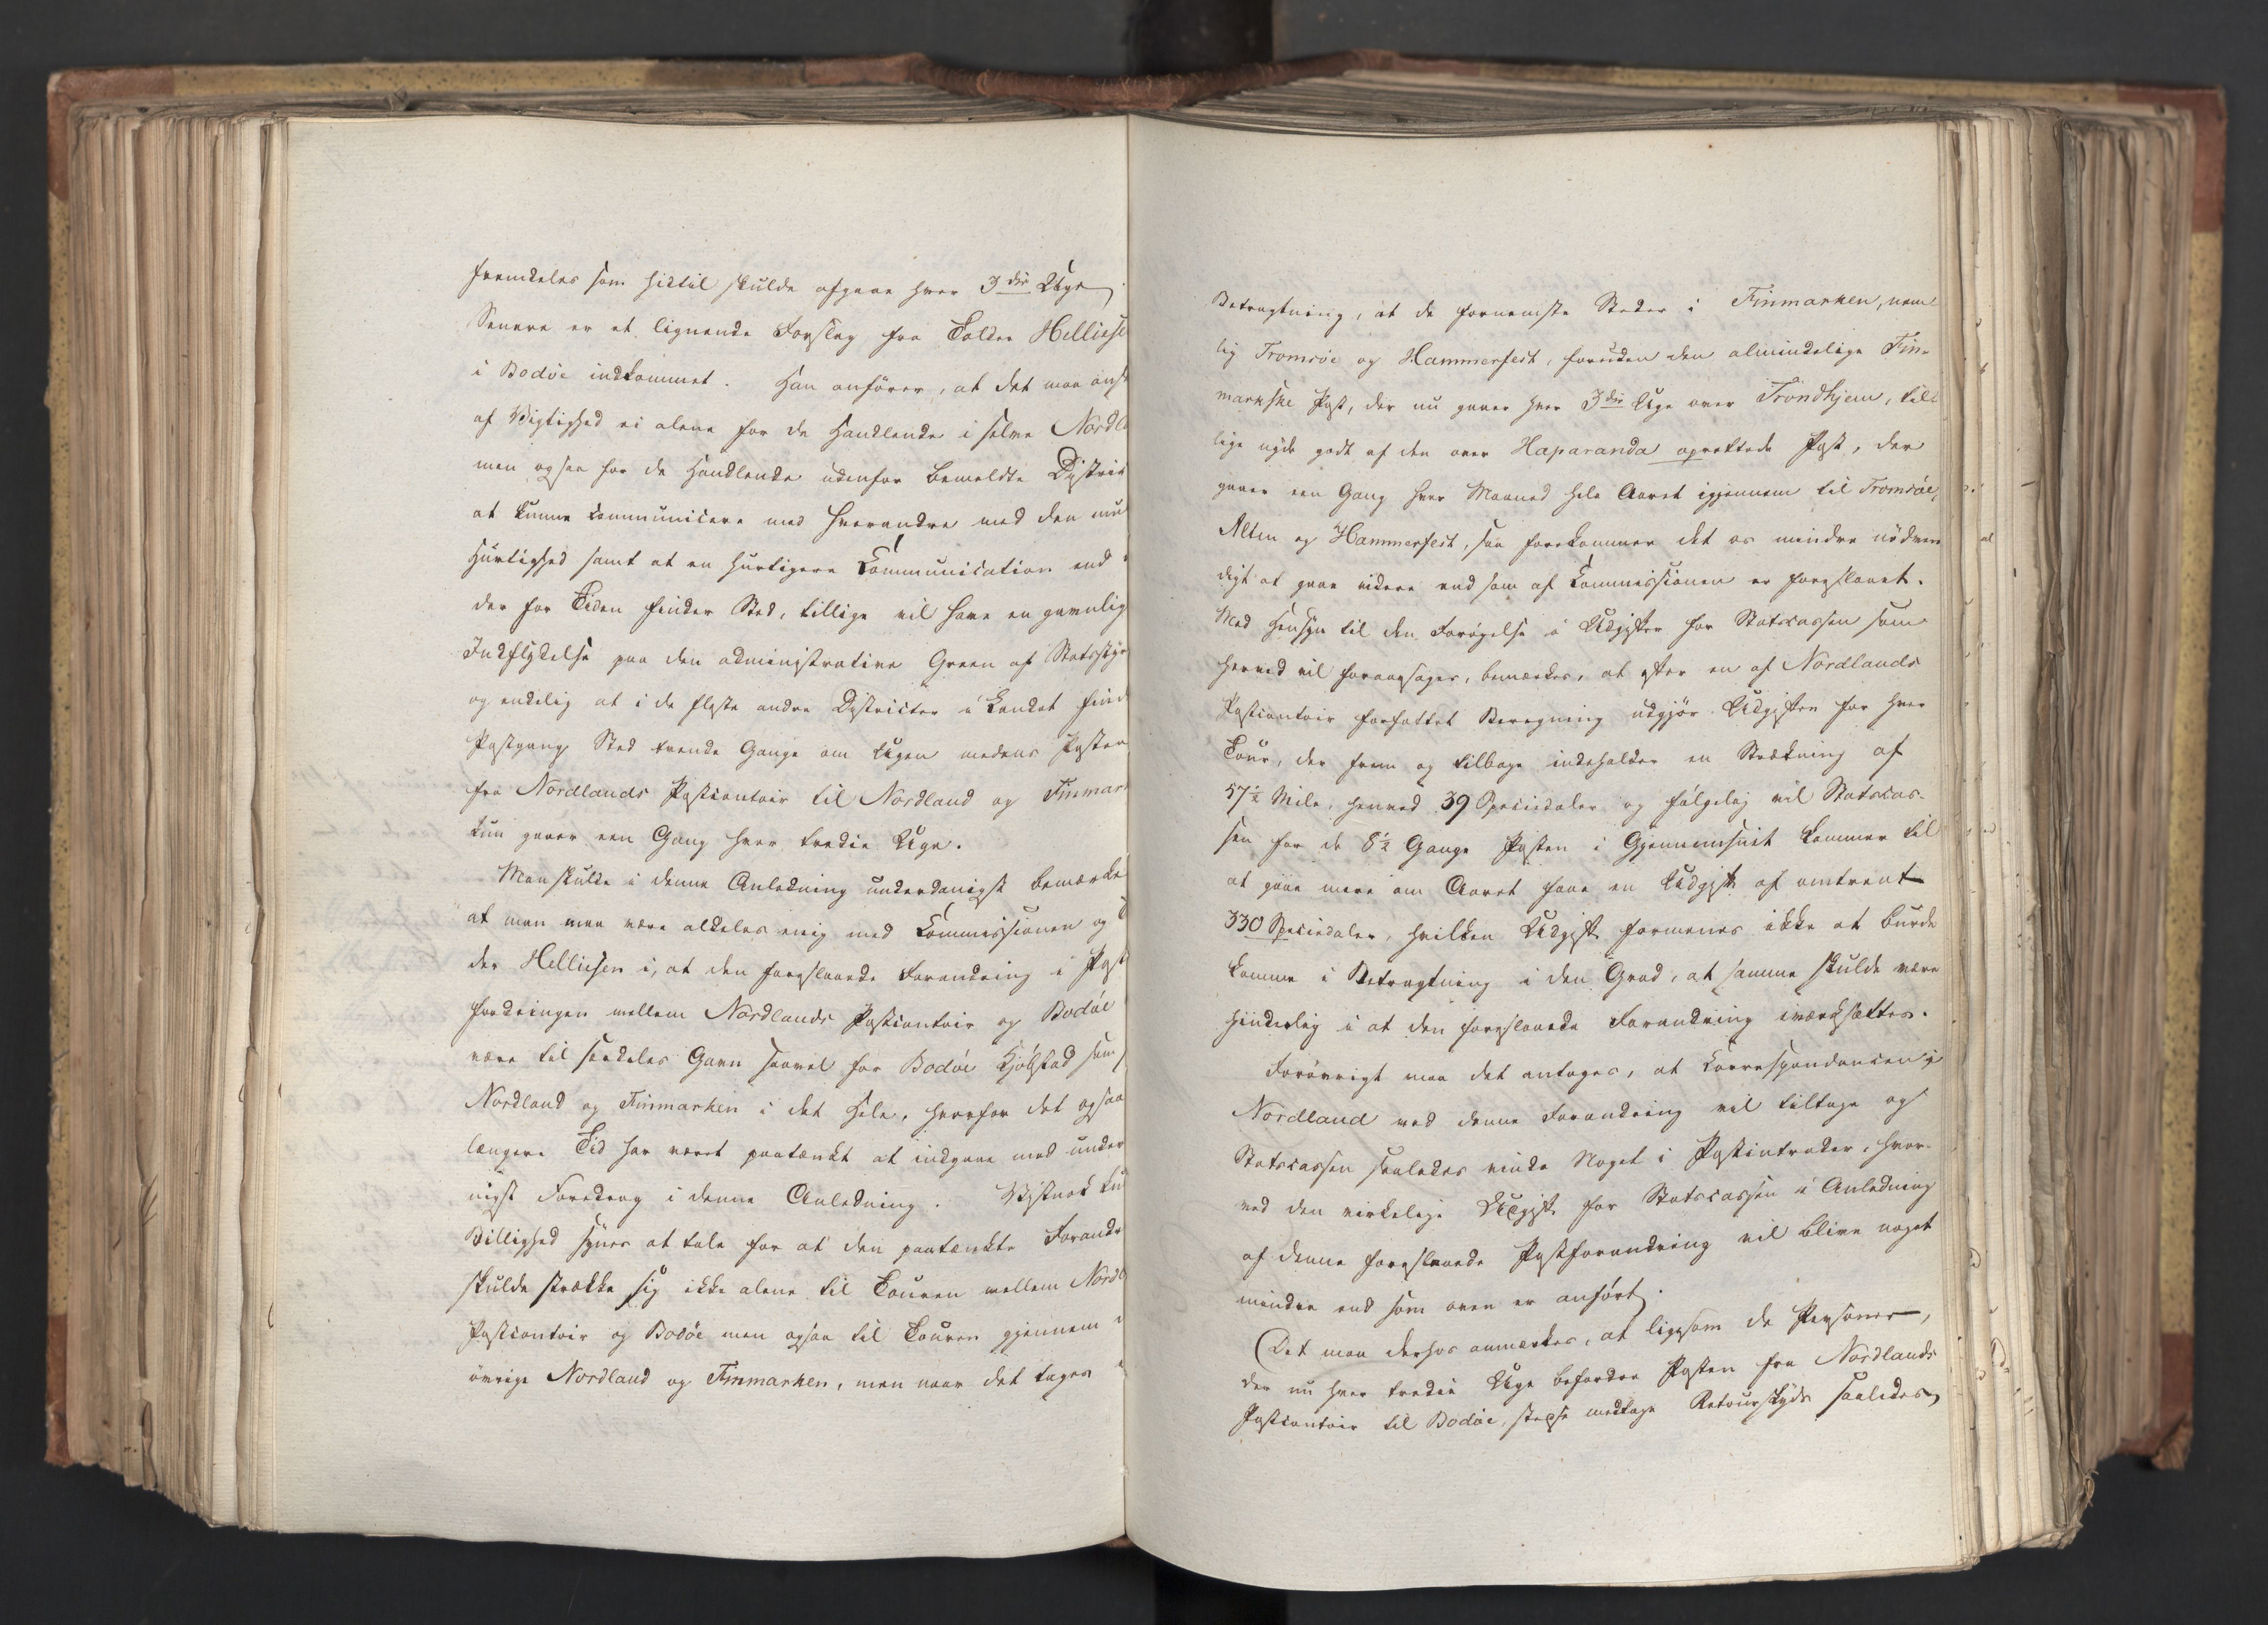 fremdeles som hidtil skulde afgaae hver 3die Uge.
Senere er et lignende Forslag fra Tolder Helliese
i Bodöe indkommet. Han anförer, at det maa ans
af Vigtighed ei alene for de Handlende i selve Nordl
men ogsaa for de Handlende udenfor bemeldte Distric
at kunne communicere med hverandre med den mu
Hurtighed samt at en hurtigere Communication end
der for Tiden finder Sted, tillige vil have en gavnlig
Indflydelse paa den administrative Green af Statsstyr
og endelig at i de fleste andre Districter i Landet find
Postgang Sted tvende Gange om Ugen medens Posten
fra Nordlands Postcontoir til Nordland og Finmar
kun gaaer een Gang hver tredie Uge.
Man skulde i denne Anledning underdanigst bemærke
at man maa være aldeles enig med Commissionen og
der Helliesen i, at den foreslaaede Forandring i Post
fordringen mellem Nordlands Postcontoir og Bodöe
være til særdeles Gavn saavel for Bodöe Kjöbstad som
Nordland og Finmarken i det Hele, hvorfor det ogsaa
længere Tid har været paatænkt at indgaae med under
nigst Foredrag i denne Anledning. Vistnok kun
Billighed synes at tale for at den paatænkte Forandr
skulde strække sig ikke alene til Touren mellem Nordl
Postcontoir og Bodöe men ogsaa til Touren gjennem
övrige Nordland og Finmarken, men naar det tages
Betragtning, at de fornemste Steder i Finmarken, nem
lig Tromsöe og Hammerfest, foruden den almindelige Fin-
markske Post, der nu gaaer hver 3die Uge over Trondhjem, till
lige nyde godt af den over Haparanda oprettede Post, der
gaaer een Gang hver Maaned hele Aaret igjennem til Tromsöe,
Alten og Hammerfest, saa forekommer det os mindre nödven
digt at gaae videre end som af Commissionen er foreslaaet.
Med Hensyn til den Forögelse i Udgifter for Statscassen som
herved vil foraarsages, bemærkes, at efter en af Nordlands
Postcontoir forfattet Beregning udgjör Udgiften for hver
Tour, der frem og tilbage indeholder en Strækning af
57½ Mile, henved 39 Speciedaler og fölgelig vil Statscas-
sen for de 8½ Gange Posten i Gjennemsnit kommer til
at gaae mere om Aaret faae en Udgift af omtrent
330 Speciedaler, hvilken Udgift formenes ikke at burde
komme i Betragtning i den Grad, at samme skulde være
hinderlig i at den foreslaaede Forandring iværksættes.
Forövrigt maa det antages, at Correspondancen i
Nordland ved denne Forandring vil tiltage og
Statscassen saaledes vinde Noget i Postintrader, hvor-
ved den virkelige Udgift for Statscassen i Anledning
af denne foreslaaede Postforandring vil blive noget
mindre end som oven er anfört.
Det maa derhos anmærkes, at ligesom de Personer,
der nu hver tredie Uge befordre Posten fra Nordlands
Postcontoir til Bodöe, medtage Retourskyds saaledes